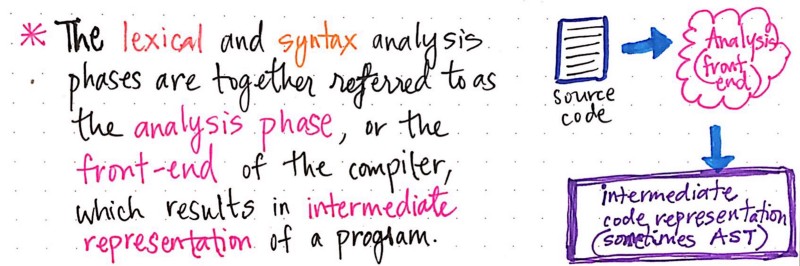 * The lexical and syntax analysis
phases are together referred to as
the analysis phase, or the
front-end of the compiler,
which results in intermediate
representation of a program.
source
code
Analysis
(front
end)
intermediate
code representation
(sometimes AST)